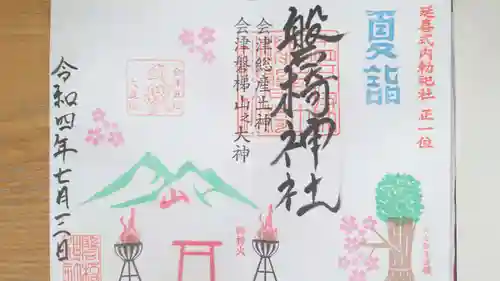 延喜式内勅記社 正一位
夏詣
磐椅神社
会津総産土神
会津磐梯山之大神
御神火
山
令和四年七月三日